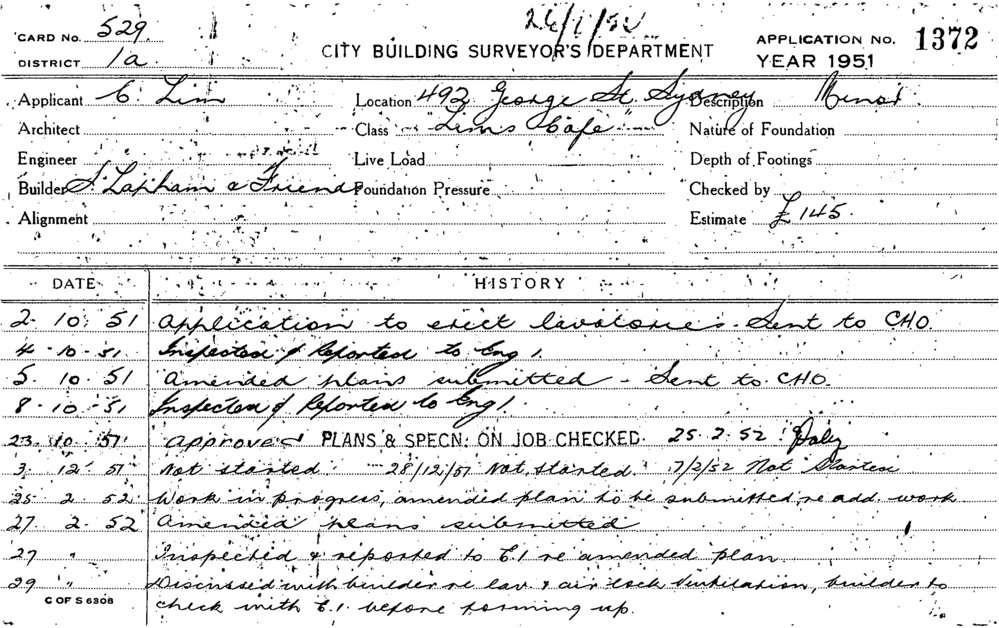 26/1/52
CARD No. 529.
DISTRICT 1a.
CITY BUILDING SURVEYOR'S DEPARTMENT
APPLICATION NO. 1372
YEAR 1951
Applicant C Lim
Location 492 George St. Sydney
Description Minor
Architect
Class "Lim's Cafe"
Nature of Foundation
Engineer
Live Load
Depth of Footings
Builder S. Lapham & Friend
Foundation Pressure
Checked by
Alignment
Estimate £145.
DATE HISTORY
2. 10. 51 Application to erect lavatories. Sent to CHO.
4. 10. 51 Inspected & Reported to Eng 1.
5. 10. 51 Amended plans submitted - Sent to CHO.
8. 10. 51 Inspected & Reported to Eng 1.
23. 10. 51 Approved PLANS & SPECN. ON JOB CHECKED. 25. 2. 52
3. 12. 51 Not started. 28/12/51 Not started. 7/2/52 Not Started
25. 2. 52 Work in progress, amended plan to be submitted re add. work
27. 2. 52 Amended plans submitted
27 " Inspected & reported to E.1 re amended plan
29 " Discussed with builder re lav. & air lock ventilation, builder to
check with E.1. before forming up.
C OF S 6308